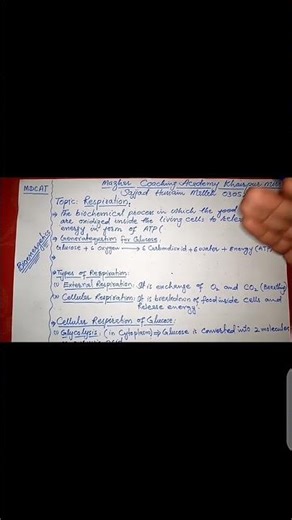 MDCAT
Mazher Coaching Academy Khairpur
Sajjad Hussain 0305
Topic: Respiration:
Bioenergetics
→ The biochemical process in which the food
are oxidized inside the living cells to
energy in form of ATP(
→ General equation for Glucose:
Glucose + 6 oxygen → 6 Carbondioxid + 6 water + Energy (ATP
→ Types of Respiration:
(i) External Respiration: It is exchange of O₂ and CO₂ (Breathing)
(ii) Cellular Respiration: It is breakdown of food inside cells and
release energy.
→ Cellular Respiration of Glucose:
(1) Glycolysis: (in cytoplasm) ⇒ Glucose is converted into 2 molecules